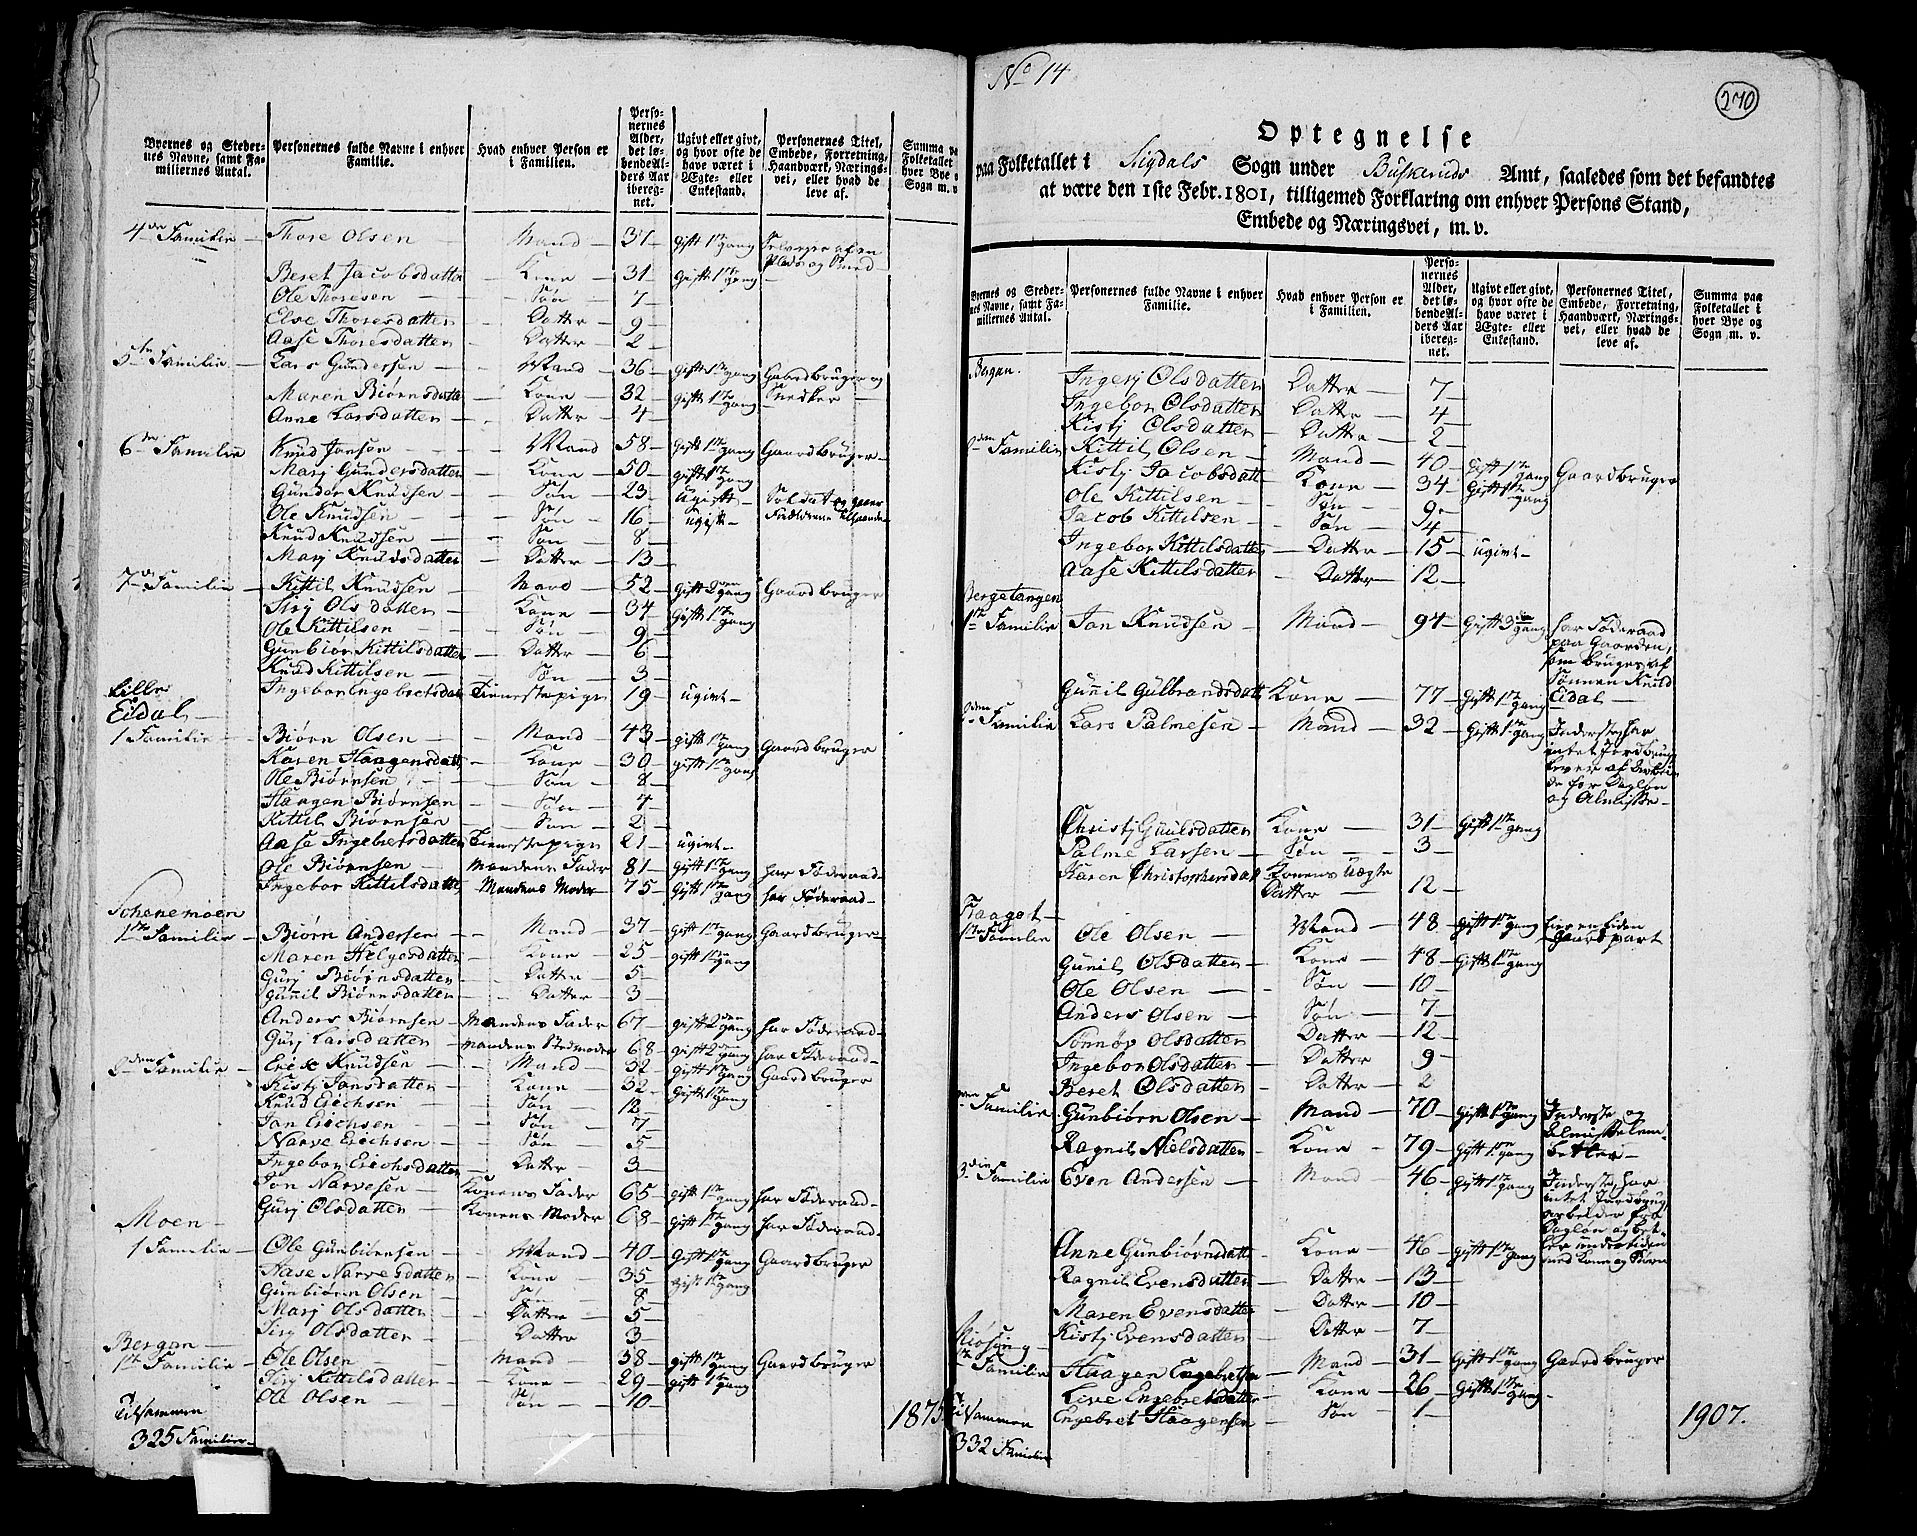 Byernes og Steder-
nes Navne, samt Fa-
miliernes Antal.
Personernes fulde Navne i enhver
Familie.
Hvad enhver Person er
i Familien.
Perso-
nernes
Alder,
det lø-
bende Al-
ders Aar
ibereg-
net.
Ugivt eller givt,
og hvor ofte de
have været i
Ægte- eller
Enkestand.
Personernes Titel,
Embede, Forretning,
Haandværk, Nærings-
vei, eller hvad de
leve af.
Summa paa
Folketallet
hver Bye
Sogn m. v.
4de Familie Thore Olsen Mand 37 Gift 1te gang Selveyer af en Plads og Smed
Beret Jacobsdatter Kone 31 Gift 1te gang
Ole Thoresen Søn 7
Else Thoresdatter Datter 9
Aase Thoresdatter Datter 2
5te Familie Lars Gundersen Mand 36 Gift 1te gang Gaardbruger og Snedker
Maren Biørnsdatter Kone 32 Gift 1te gang
Anne Larsdatter Datter 4
6te Familie Knud Jonsen Mand 58 Gift 1te gang Gaardbruger
Marj Gundersdatter Kone 50 gift 1te gang
Gunder Knudsen Søn 23 Ugift Soldat
Ole Knudsen Søn 16 ugift
Knud Knudsen Søn 8
Marj Knudsdatter Datter 13
7de Familie Kittil Knudsen Mand 52 Gift 2den gang Gaardbruger
Sirj Olsdatter Kone 34 Gift 1te gang
Ole Kittilsen Søn 9
Gunbior Kittilsdatter Datter 6
Knud Kittilsen Søn 3
Ingebor Engebretsdat Tienestepige 19 ugivt
Lille
Eidal
1 Familie Biørn Olsen Mand 43 gift 1te gang Gaardbruger
Karen Haagensdatt Kone 30 gift 1te gang
Ole Biørnsen Søn 8
Haagen Biørnsen Søn 4
Kittil Biørnsen Søn 2
Aase Ingebretsdatter Tienestepige 21 ugivt
Ole Biørnsen Mandens Fader 81 Gift 1te gang har Føderaad
Ingebor Kittilsdatter Mandens Moder 75 Gift 1te gang har Føderaad
Schenemoen
1te Familie Biørn Andersen Mand 37 Gift 1te gang Gaardbruger
Maren Helgesdatter Kone 25 gift 1te gang
Gurj Biørnsdatter Datter 5
Gunnil Biørnsdatter Datter 3
Anders Biørnsen Mandens Fader 67 gift 2den gang har Føderaad
Gurj Larsdatter Mandens Stedmoder 68 gift 2den gang har Føderaad
2den Familie Erich Knudsen Mand 32 Gift 1te gang Gaardbruger
Kistj Jansdatter Kone 32 Gift 1te gang
Knud Erichsen Søn 12
Jan Erichsen Søn 7
Narve Erichsen Søn 5
Ingebor Erichsdatter Datter 3
Jon Narvesen Konens Fader 65 gift 1te gang har Føderaad
Gurj Olsdatter Konens Moder 68 gift 1te gang har Føderaad
Moen
1 Familie Ole Gunbiørnsen Mand 40 Gift 1te gang Gaardbruger
Aase Narvesdatter Kone 35 gift 1te gang
Gunbiørn Olsen Søn 8
Marj Olsdatter Datter 5
Sirj Olsdatter Datter 3
Bergan
1te Familie Ole Olsen Mand 38 gift 1te gang Gaardbruger
Sirj Kittilsdatter Kone 29 gift 1te gang
Ole Olsen Søn 10
Tilsammen
325 Familier
1875
No 14
270
Optegnelse
paa Folketallet i Sigdals Sogn under Buskeruds Amt, saaledes som det befandtes
at være den 1ste Febr. 1801, tilligemed Forklaring om enhver Persons Stand,
Embede og Næringsvei, m. v.
Byernes og Steder-
nes Navne, samt Fa-
miliernes Antal.
Personernes fulde Navne i enhver
Familie.
Hvad enhver Person er
i Familien.
Perso-
nernes
Alder,
det lø-
bende Al-
ders Aar
ibereg-
net.
Ugivt eller givt,
og hvor ofte de
have været i
Ægte- eller
Enkestand.
Personernes Titel,
Embede, Forretning,
Haandværk, Nærings-
vei, eller hvad de
leve af.
Summa paa
Folketallet i
hver Bye og
Sogn m. v.
Bergan. Ingerj Olsdatter Datter 7
Ingebor Olsdatter Datter 4
Kistj Olsdatter Datter 2
2den Familie Kittil Olsen Mand 40 Gift 1te gang Gaardbruger
Kistj Jacobsdatt Kone 34 Gift 1te gang
Ole Kittilsen Søn 9
Jacob Kittilsen Søn 4
Ingebor Kittilsdatter Datter 15 ugivt
Aase Kittilsdatter Datter 12
Bergetangen
1te Familie Jon Knudsen Mand 94 Gift 3die gang har Føderaad
paa Gaarden,
som bruges af
Sønnen Knud
Eidal
Gunnil Gulbrandsdatt Kone 77 Gift 1te gang
2den Familie Lars Palmesen Mand 32 Gift 1te gang Inderste, har
intet Jordbrug
lever af Arbei-
de for Dagløn
og Almisse
Christj Gunulsdatter Kone 31 Gift 1te gang
Palme Larsen Søn 3
Karen Christophersdat Konens Uægte
Datter 12
Kaaget
1te Familie Ole Olsen Mand 48 Gift 1te gang Eier en liden
Gaardpart
Gunil Olsdatter Kone 48 Gift 1te gang
Ole Olsen Søn 10
Anders Olsen Søn 7
Sønnøv Olsdatter Datter 12
Ingebor Olsdatter Datter 9
Beret Olsdatter Datter 2
2den Familie Gunbiørn Olsen Mand 70 Gift 1te gang Inderste og
Almisselem
betler
Ragnil Nielsdatter Kone 79 Gift 1te gang
3die Familie Even Andersen Mand 46 Gift 1te gang Inderste, har
intet Jordbrug
arbeider for
Dagløn og bet-
ler undertiden
med Kone og Børn
Anne Gunbiørnsdatt Kone 46 gift 1te gang
Ragnil Evensdatter Datter 13
Maren Evensdatter Datter 10
Kistj Evensdatter Datter 7
1te Familie Haagen Engebretsen Mand 31 Gift 1te gang Gaardbruger
Live Engebretsdatter Kone 26 Gift 1te gang
Engebret Haagensen Søn 1
Tilsammen
332 Familier
1907.